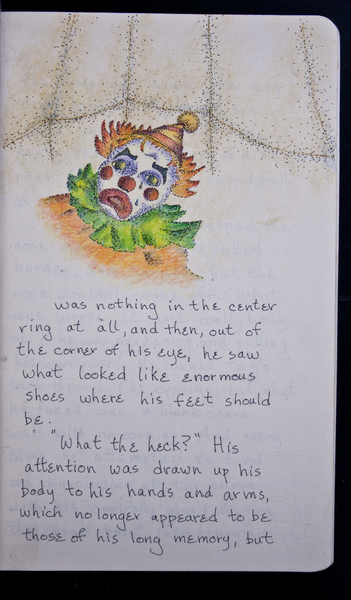 was nothing in the center
ring at all, and then, out of
the corner of his eye, he saw
what looked like enormous
shoes where his feet should
be.
"What the heck?" His
attention was drawn up his
body to his hands and arms,
which no longer appeared to be
those of his long memory, but